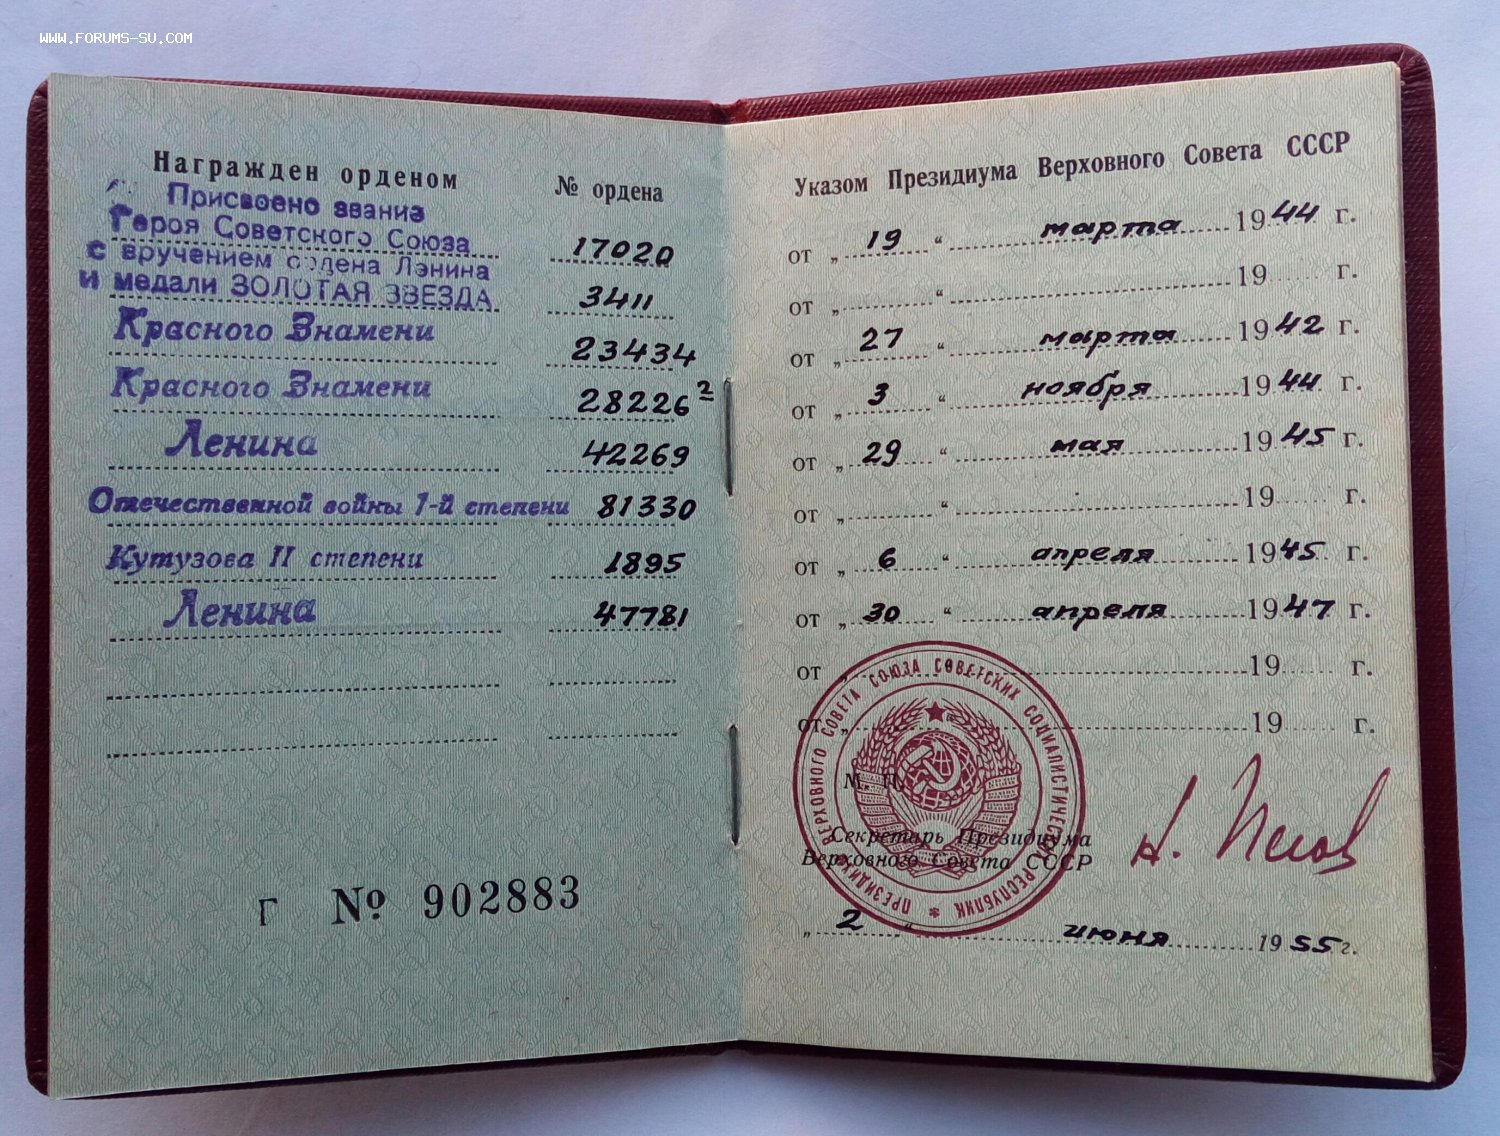 WWW.FORUMS-SU.COM
Награжден орденом № ордена
Присвоено звание
Героя Советского Союза 17020
с вручением ордена Ленина
и медали ЗОЛОТАЯ ЗВЕЗДА 3411
Красного Знамени 23434
Красного Знамени 28226²
Ленина 42269
Отечественной войны 1-й степени 81330
Кутузова II степени 1895
Ленина 47781
Г № 902883
Указом Президиума Верховного Совета СССР
от „ 19 “ марта 1944 г.
от „ “ 19 г.
от „ 27 “ марта 1942 г.
от „ 3 “ ноября 1944 г.
от „ 29 “ мая 1945 г.
от „ “ 19 г.
от „ 6 “ апреля 1945 г.
от „ 30 “ апреля 1947 г.
от „ 19 г.
от „ 19 г.
ПРЕЗИДИУМ ВЕРХОВНОГО СОВЕТА СОЮЗА СОВЕТСКИХ СОЦИАЛИСТИЧЕСКИХ РЕСПУБЛИК
М. П.
Секретарь Президиума
Верховного Совета СССР
Н. Пегов
„ 2 “ июня 1955 г.